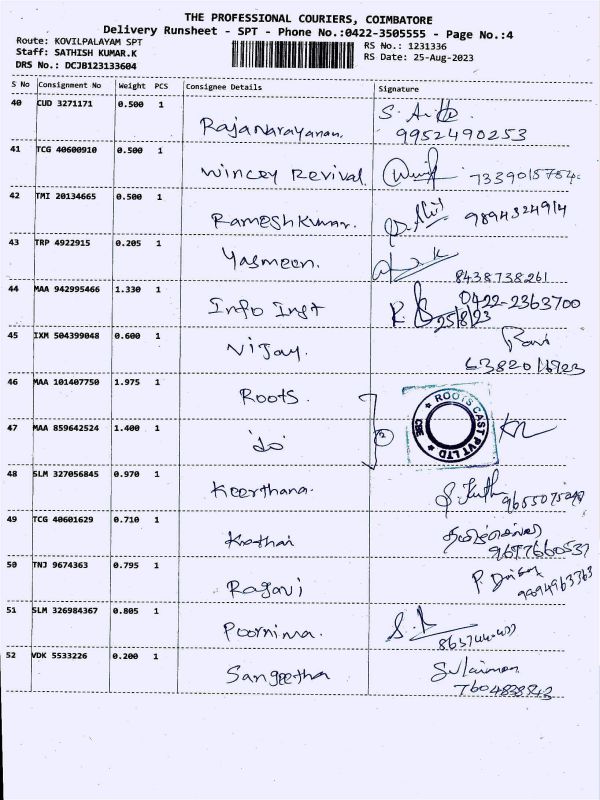 THE PROFESSIONAL COURIERS, COIMBATORE
Delivery Runsheet - SPT - Phone No.:0422-3505555 - Page No.:4
Route: KOVILPALAYAM SPT
Staff: SATHISH KUMAR.K
DRS No.: DCJB123133604
RS No.: 1231336
RS Date: 25-Aug-2023
S No Consignment No Weight PCS Consignee Details Signature
40 CUD 3271171 0.500 1 Rajanarayanan. S.
9952490253
41 TCG 40600910 0.500 1 Wincey Revival.
42 TMI 20134665 0.500 1 Rameshkumar. 9894324914
43 TRP 4922915 0.205 1 Yasmeen.
8438738261
44 MAA 942995466 1.330 1 Info Inst 0422-2363700
25/8/23
45 IXM 504399048 0.600 1 Vijay.
46 MAA 101407750 1.975 1 Roots.
ROOTS CAST PVT LTD CBE
47 MAA 859642524 1.400 1 do
48 SLM 327056845 0.970 1 Keerthana.
49 TCG 40601629 0.710 1
9677660537
50 TNJ 9674363 0.795 1 Ragavi P.
51 SLM 326984367 0.805 1 Poornima.
52 VDK 5533226 0.200 1 Sangeetha Sulaiman